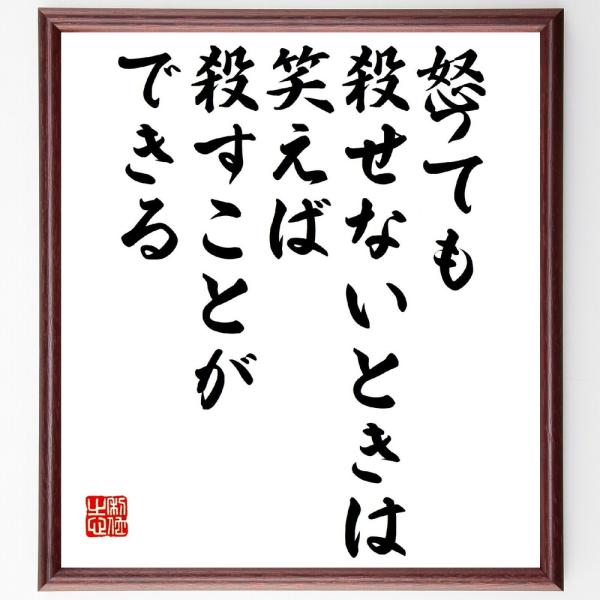 怒っても
殺せないときは
笑えば
殺すことが
できる